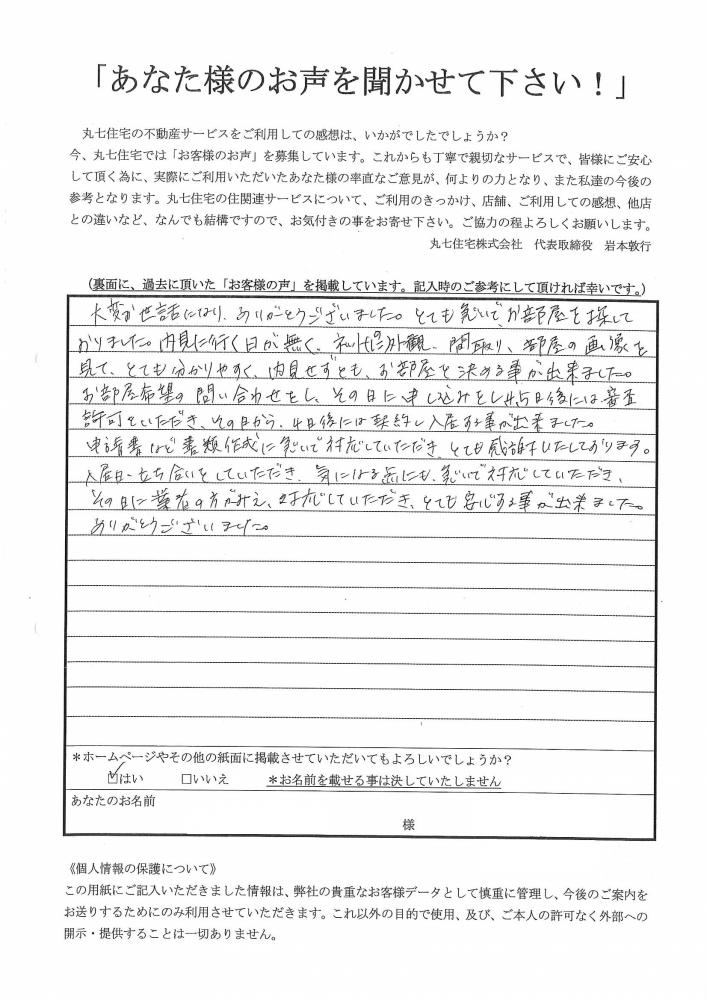 「あなた様のお声を聞かせて下さい！」
丸七住宅の不動産サービスをご利用しての感想は、いかがでしたでしょうか？
今、丸七住宅では「お客様のお声」を募集しています。これからも丁寧で親切なサービスで、皆様にご安心
して頂く為に、実際にご利用いただいたあなた様の率直なご意見が、何よりの力となり、また私達の今後の
参考となります。丸七住宅の住関連サービスについて、ご利用のきっかけ、店舗、ご利用しての感想、他店
との違いなど、なんでも結構ですので、お気付きの事をお寄せ下さい。ご協力の程よろしくお願いします。
丸七住宅株式会社　代表取締役　岩本敦行
（裏面に、過去に頂いた「お客様の声」を掲載しています。記入時のご参考にして頂ければ幸いです。）
大変お世話になり、ありがとうございました。とても急いで、お部屋を探して
おりました。内見に行く日が無く、ネットで外観、間取り、お部屋の画像を
見て、とても分かりやすく、内見せずとも、お部屋を決める事が出来ました。
お部屋希望の問い合わせをし、その日に申し込みをし4、5日後には審査
許可をいただき、その日から、4日後には契約し入居する事が出来ました。
申請書など書類作成に急いで対応していただき、とても感謝いたしております。
入居日、立ち合いをしていただき、気になる点にも、急いで対応していただき、
その日に業者の方がみえ、対応していただき、とても安心する事が出来ました。
ありがとうございました。
＊ホームページやその他の紙面に掲載させていただいてもよろしいでしょうか？
☑はい　　□いいえ　　＊お名前を載せる事は決していたしません
あなたのお名前
様
《個人情報の保護について》
この用紙にご記入いただきました情報は、弊社の貴重なお客様データとして慎重に管理し、今後のご案内を
お送りするためにのみ利用させていただきます。これ以外の目的で使用、及び、ご本人の許可なく外部への
開示・提供することは一切ありません。